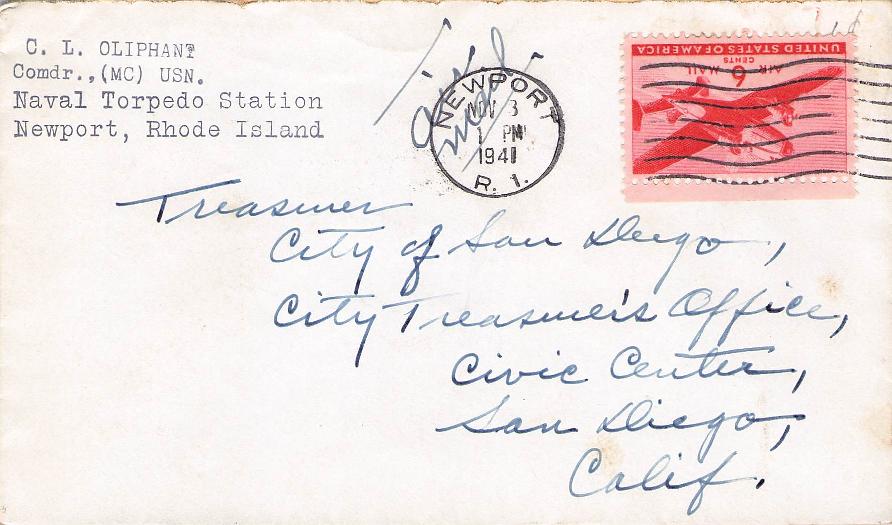 C. L. OLIPHANT
Comdr.,(MC) USN.
Naval Torpedo Station
Newport, Rhode Island
Air
mail
NEWPORT
NOV 3
1 PM
1941
R. I.
UNITED STATES OF AMERICA
6
CENTS
AIR MAIL
Treasurer
City of San Diego,
City Treasurer's Office,
Civic Center,
San Diego,
Calif.